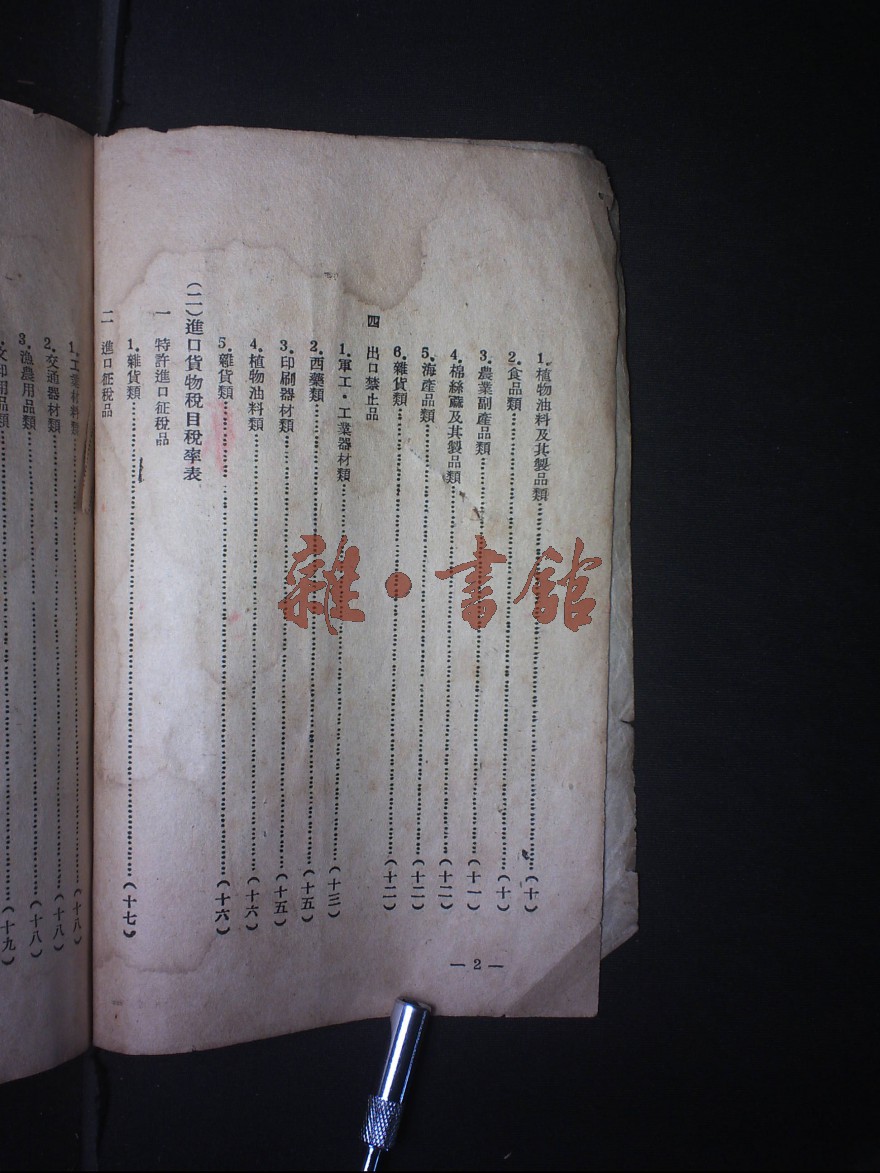 1.植物油料及其製品類……(十)
2.食品類……(十)
3.農業副產品類……(十一)
4.棉絲蔴及其製品類……(十二)
5.海產品類……(十二)
6.雜貨類……(十二)
四 出口禁止品
1.軍工・工業器材類……(十三)
2.西藥類……(十五)
3.印刷器材類……(十五)
4.植物油料類……(十六)
5.雜貨類……(十六)
(二)進口貨物稅目稅率表
一 特許進口征稅品
1.雜貨類……(十七)
二 進口征稅品
1.工業材料類……(十八)
2.交通器材類……(十八)
3.漁農用品類……(十八)
文印用品類……(十九)
— 2 —
雜・書館